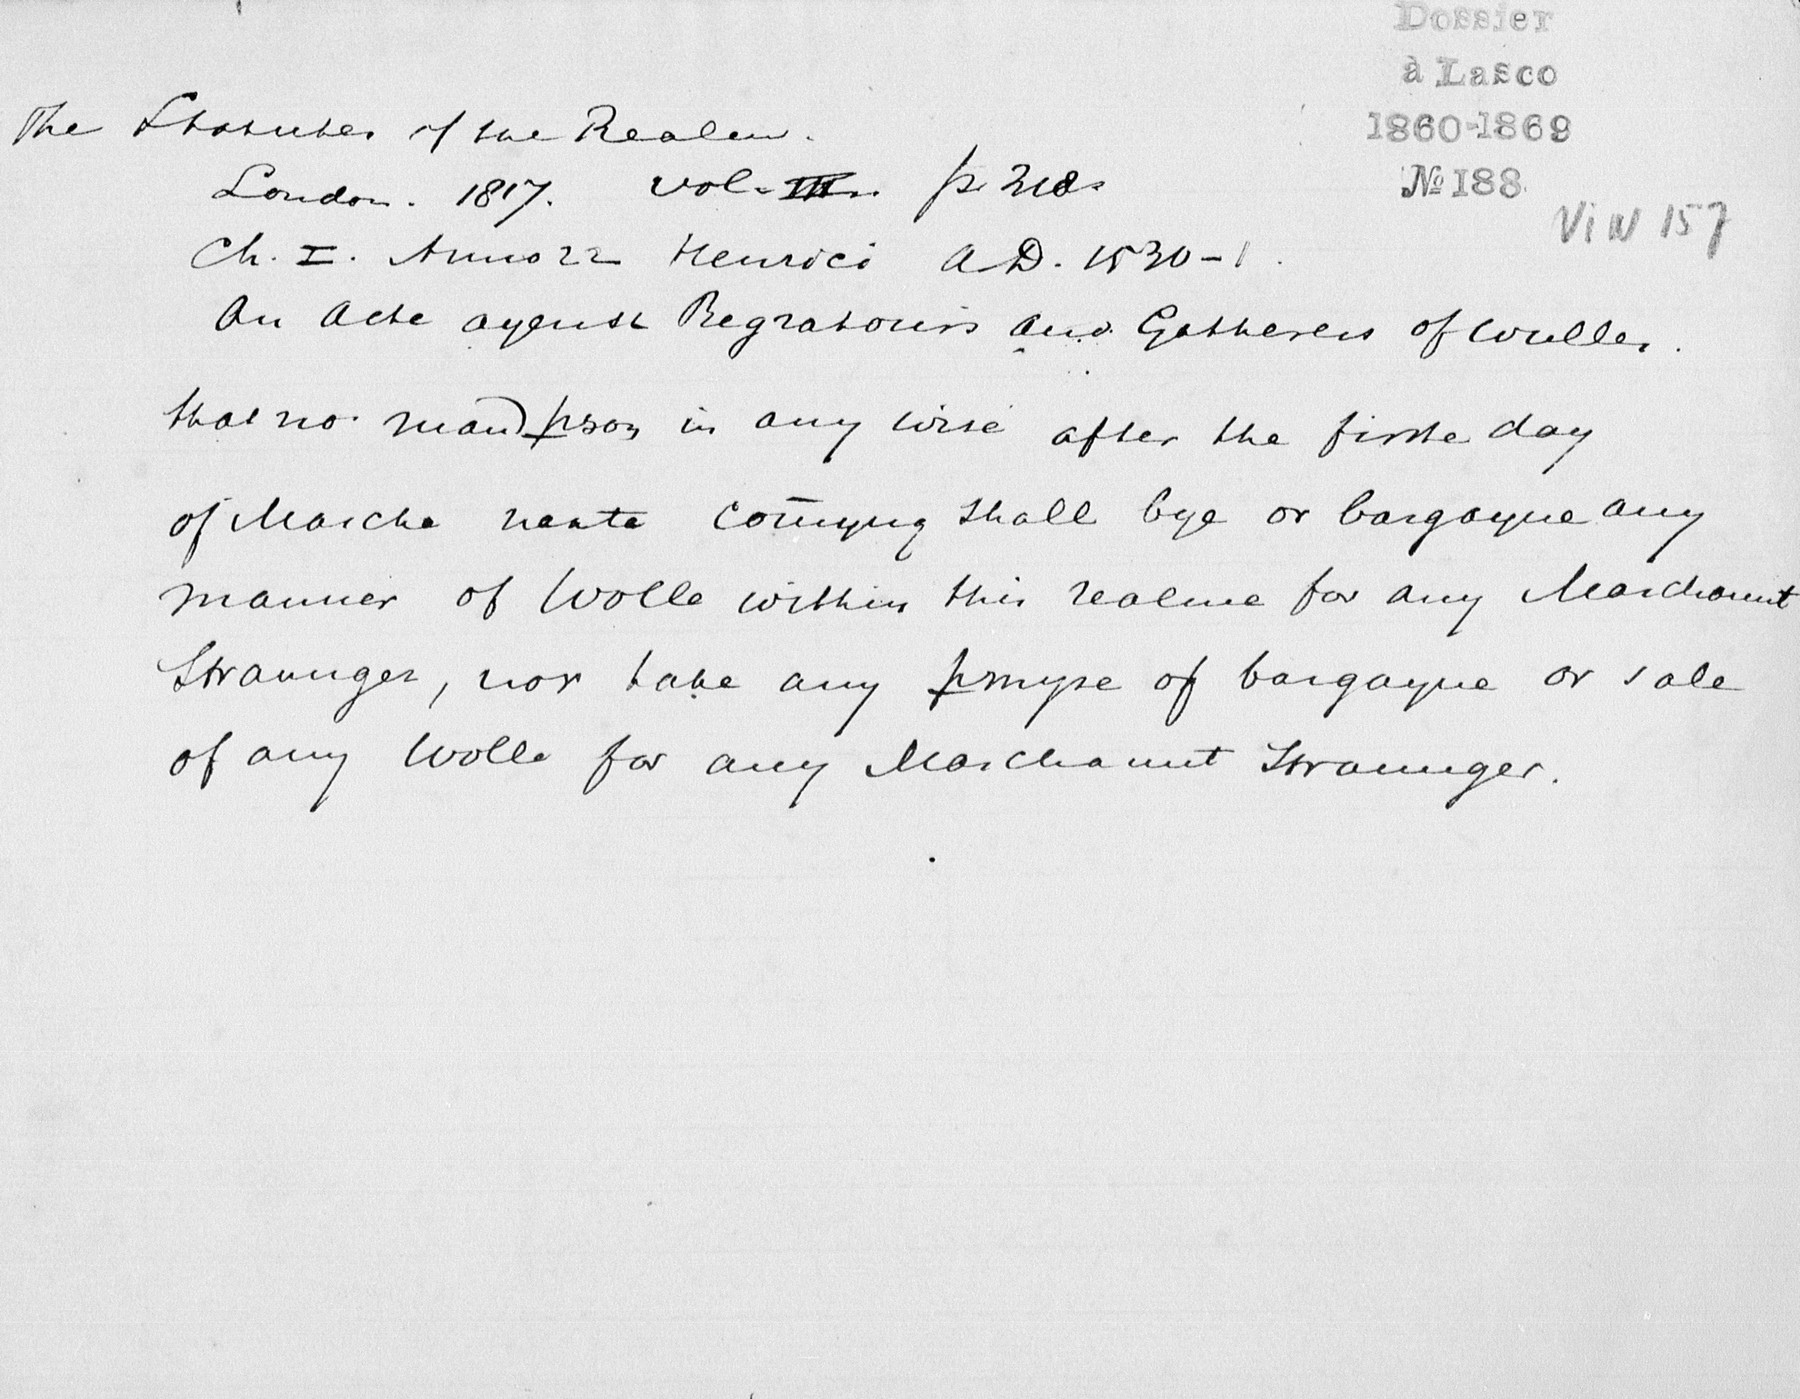 Dossier
à Lasco
1860-1869
№ 188
VIIV 157
The Statutes of the Realm.
London. 1817. vol. III. p. 218.
Ch. I. Anno 22 Henrici A.D. 1530-1.
An Acte agenst Regratouris and Gatherers of Wulles.
that no man) pson in any wise after the firste day
of Marche nexte com̄yng shall bye or bargayne any
manner of Wolle within this realme for any Marchaunt
Straunger, nor take any pmyse of bargayne or sale
of any Wolle for any Marchaunt Straunger.